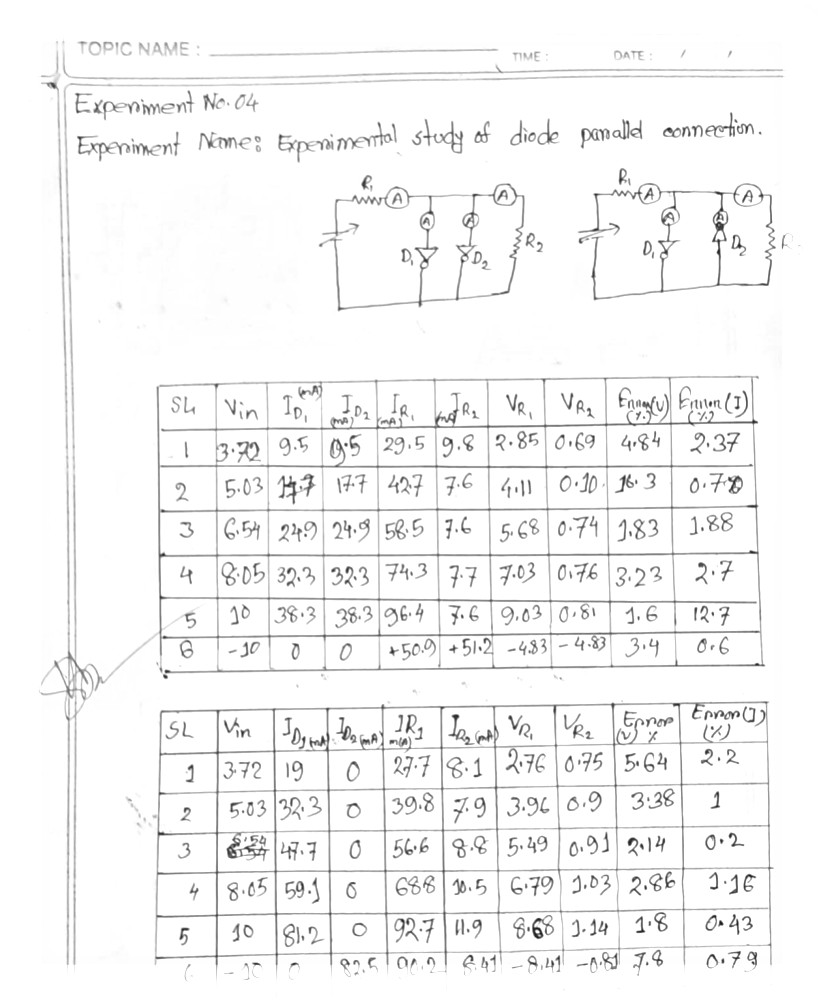 TOPIC NAME :
TIME :
DATE : / /
Experiment No. 04
Experiment Name: Experimental study of diode parallel connection.
R₁ A A A A D₁ D₂ R₂
R₁ A A A A D₁ D₂
SL Vin I_D₁ (mA) I_D₂ (mA) I_R₁ (mA) I_R₂ (mA) V_R₁ V_R₂ Error(V) (%) Error(I) (%)
1 3.72 9.5 9.5 29.5 9.8 2.85 0.69 4.84 2.37
2 5.03 17.7 17.7 42.7 7.6 4.11 0.10 16.3 0.70
3 6.54 24.9 24.9 58.5 7.6 5.68 0.74 1.83 1.88
4 8.05 32.3 32.3 74.3 7.7 7.03 0.76 3.23 2.7
5 10 38.3 38.3 96.4 7.6 9.03 0.81 1.6 12.7
6 -10 0 0 +50.9 +51.2 -4.83 -4.83 3.4 0.6
SL Vin I_D₁ (mA) I_D₂ (mA) IR₁ m(A) I_R₂ (mA) V_R₁ V_R₂ Error (V) % Error(I) (%)
1 3.72 19 0 27.7 8.1 2.76 0.75 5.64 2.2
2 5.03 32.3 0 39.8 7.9 3.96 0.9 3.38 1
3 6.54 47.7 0 56.6 8.8 5.49 0.91 2.14 0.2
4 8.05 59.1 0 688 10.5 6.79 1.03 2.86 1.16
5 10 81.2 0 92.7 11.9 8.68 1.14 1.8 0.43
-10 0 82.5 90.2 8.41 -8.41 -0.81 7.8 0.79